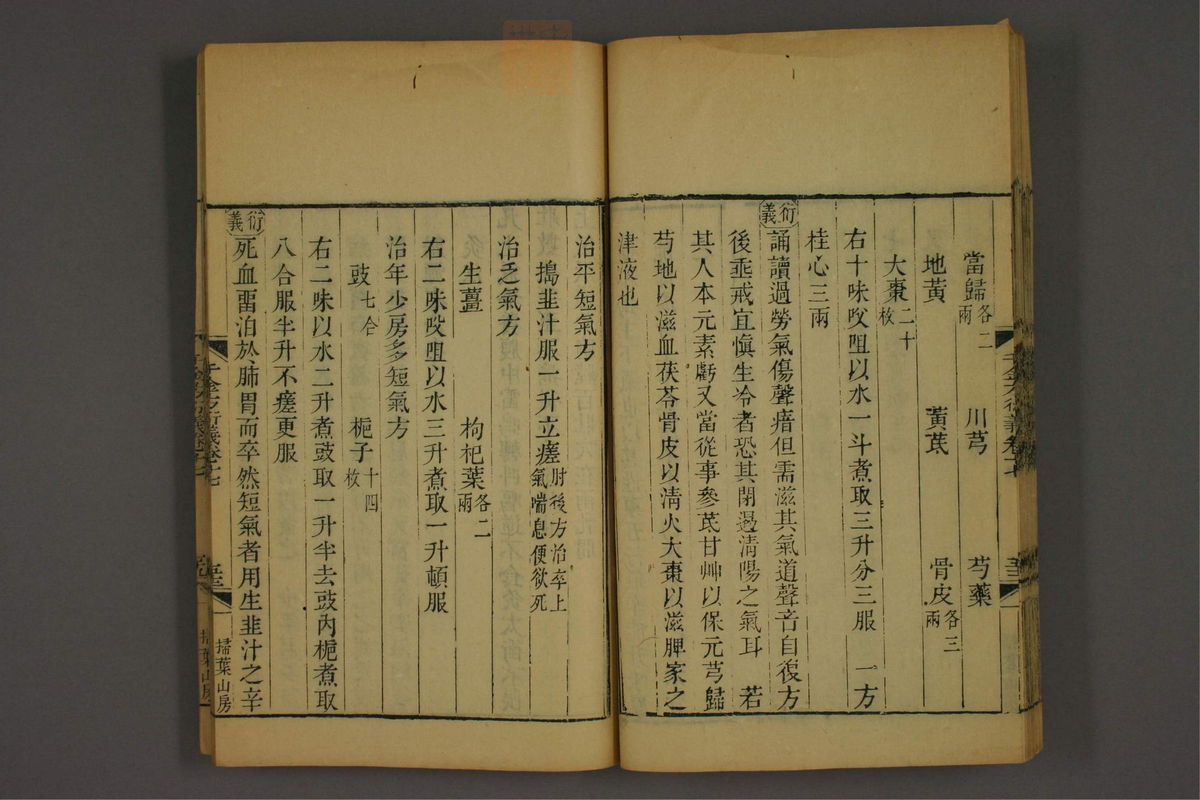 當歸各二兩　川芎　芍藥
地黃　黃芪　骨皮各三兩
大棗二十枚
右十味㕮咀以水一斗煮取三升分三服　一方
桂心三兩
衍義誦讀過勞氣傷聲瘖但需滋其氣道聲音自復方
後垂戒宜愼生冷者恐其閉遏淸陽之氣耳　若
其人本元素虧又當從事參芪甘艸以保元芎歸
芍地以滋血茯苓骨皮以淸火大棗以滋脾家之
津液也
治平短氣方
搗韭汁服一升立瘥肘後方治卒上氣喘息便欲死
治乏氣方
生薑　枸杞葉各二兩
右二味㕮咀以水三升煮取一升頓服
治年少房多短氣方
豉七合　梔子十四枚
右二味以水二升煮豉取一升半去豉內梔煮取
八合服半升不瘥更服
衍義死血畱泊於肺胃而卒然短氣者用生韭汁之辛
千金方衍義卷十七
掃葉山房